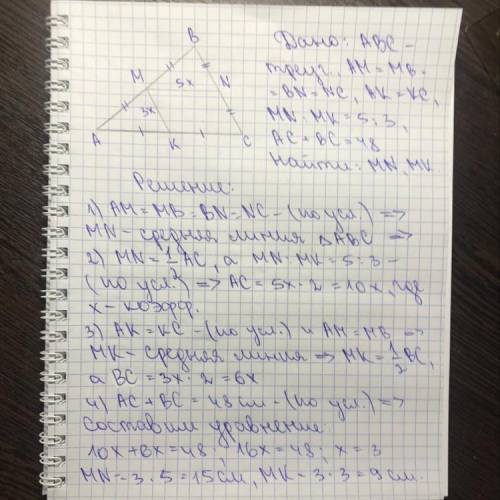 B
M
5x
N
3x
A
K
C
Дано: ABC -
треуг., AM = MB =
= BN = NC, AK = KC,
MN : MK = 5 : 3,
AC + BC = 48
Найти: MN, MK
Решение:
1) AM = MB = BN = NC - (по усл.) =>
MN - средная линия △ABC =>
2) MN = 1/2 AC, а MN : MK = 5 : 3 -
(по усл.) => AC = 5x · 2 = 10x, где
x - коэфф.
3) AK = KC - (по усл.) и AM = MB =>
MK - средная линия => MK = 1/2 BC,
а BC = 3x · 2 = 6x
4) AC + BC = 48 см - (по усл.) =>
Составим уравнение:
10x + 6x = 48 ; 16x = 48 ; x = 3
MN = 3 · 5 = 15 см, MK = 3 · 3 = 9 см.